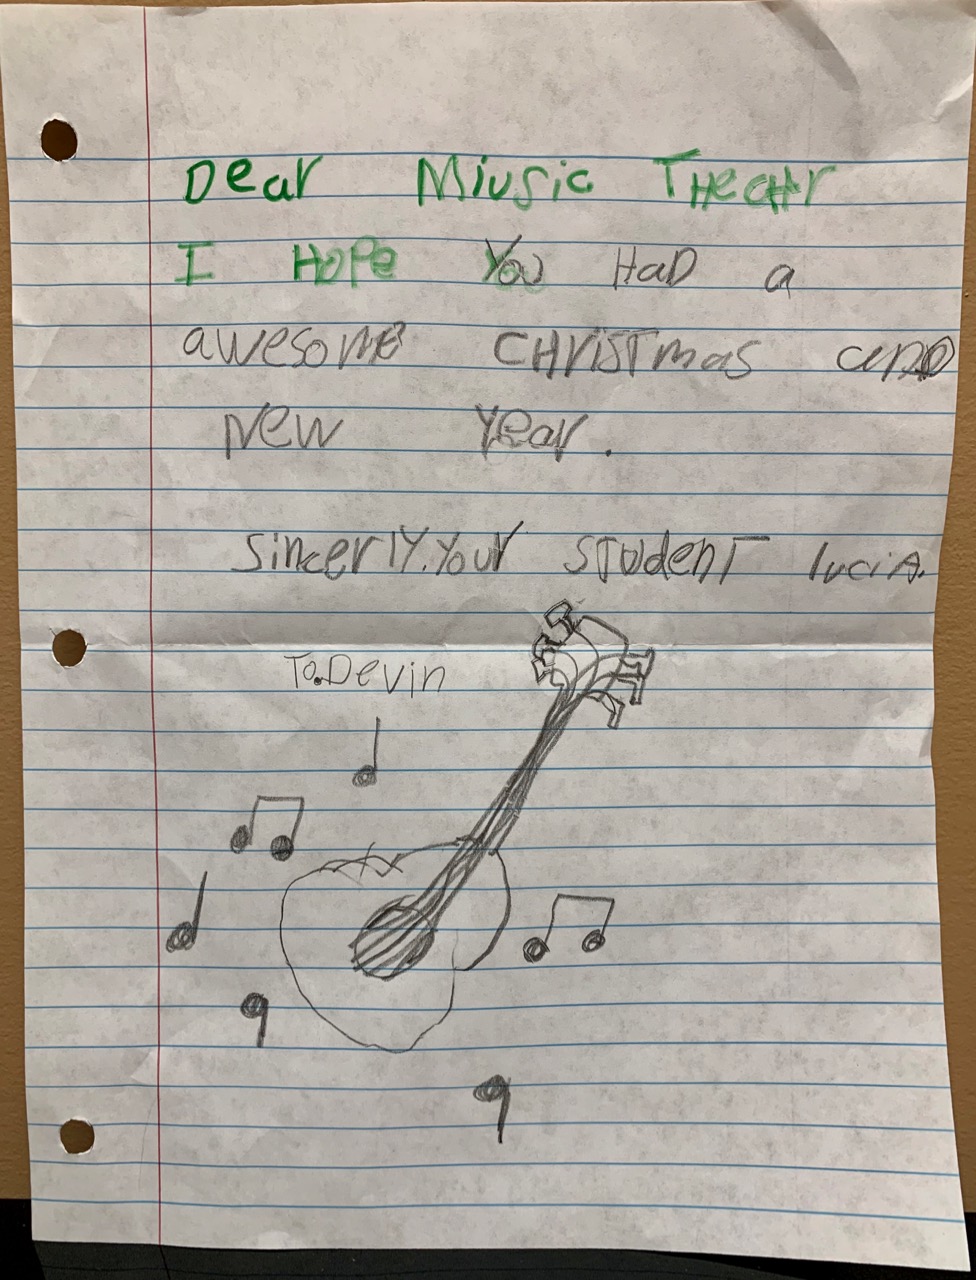 Dear Miusic THeatr
I HoPe You HaD a
awesome CHriSTmas anD
New Year.
Sincerly. Your STudenT lucia.
To. Devin